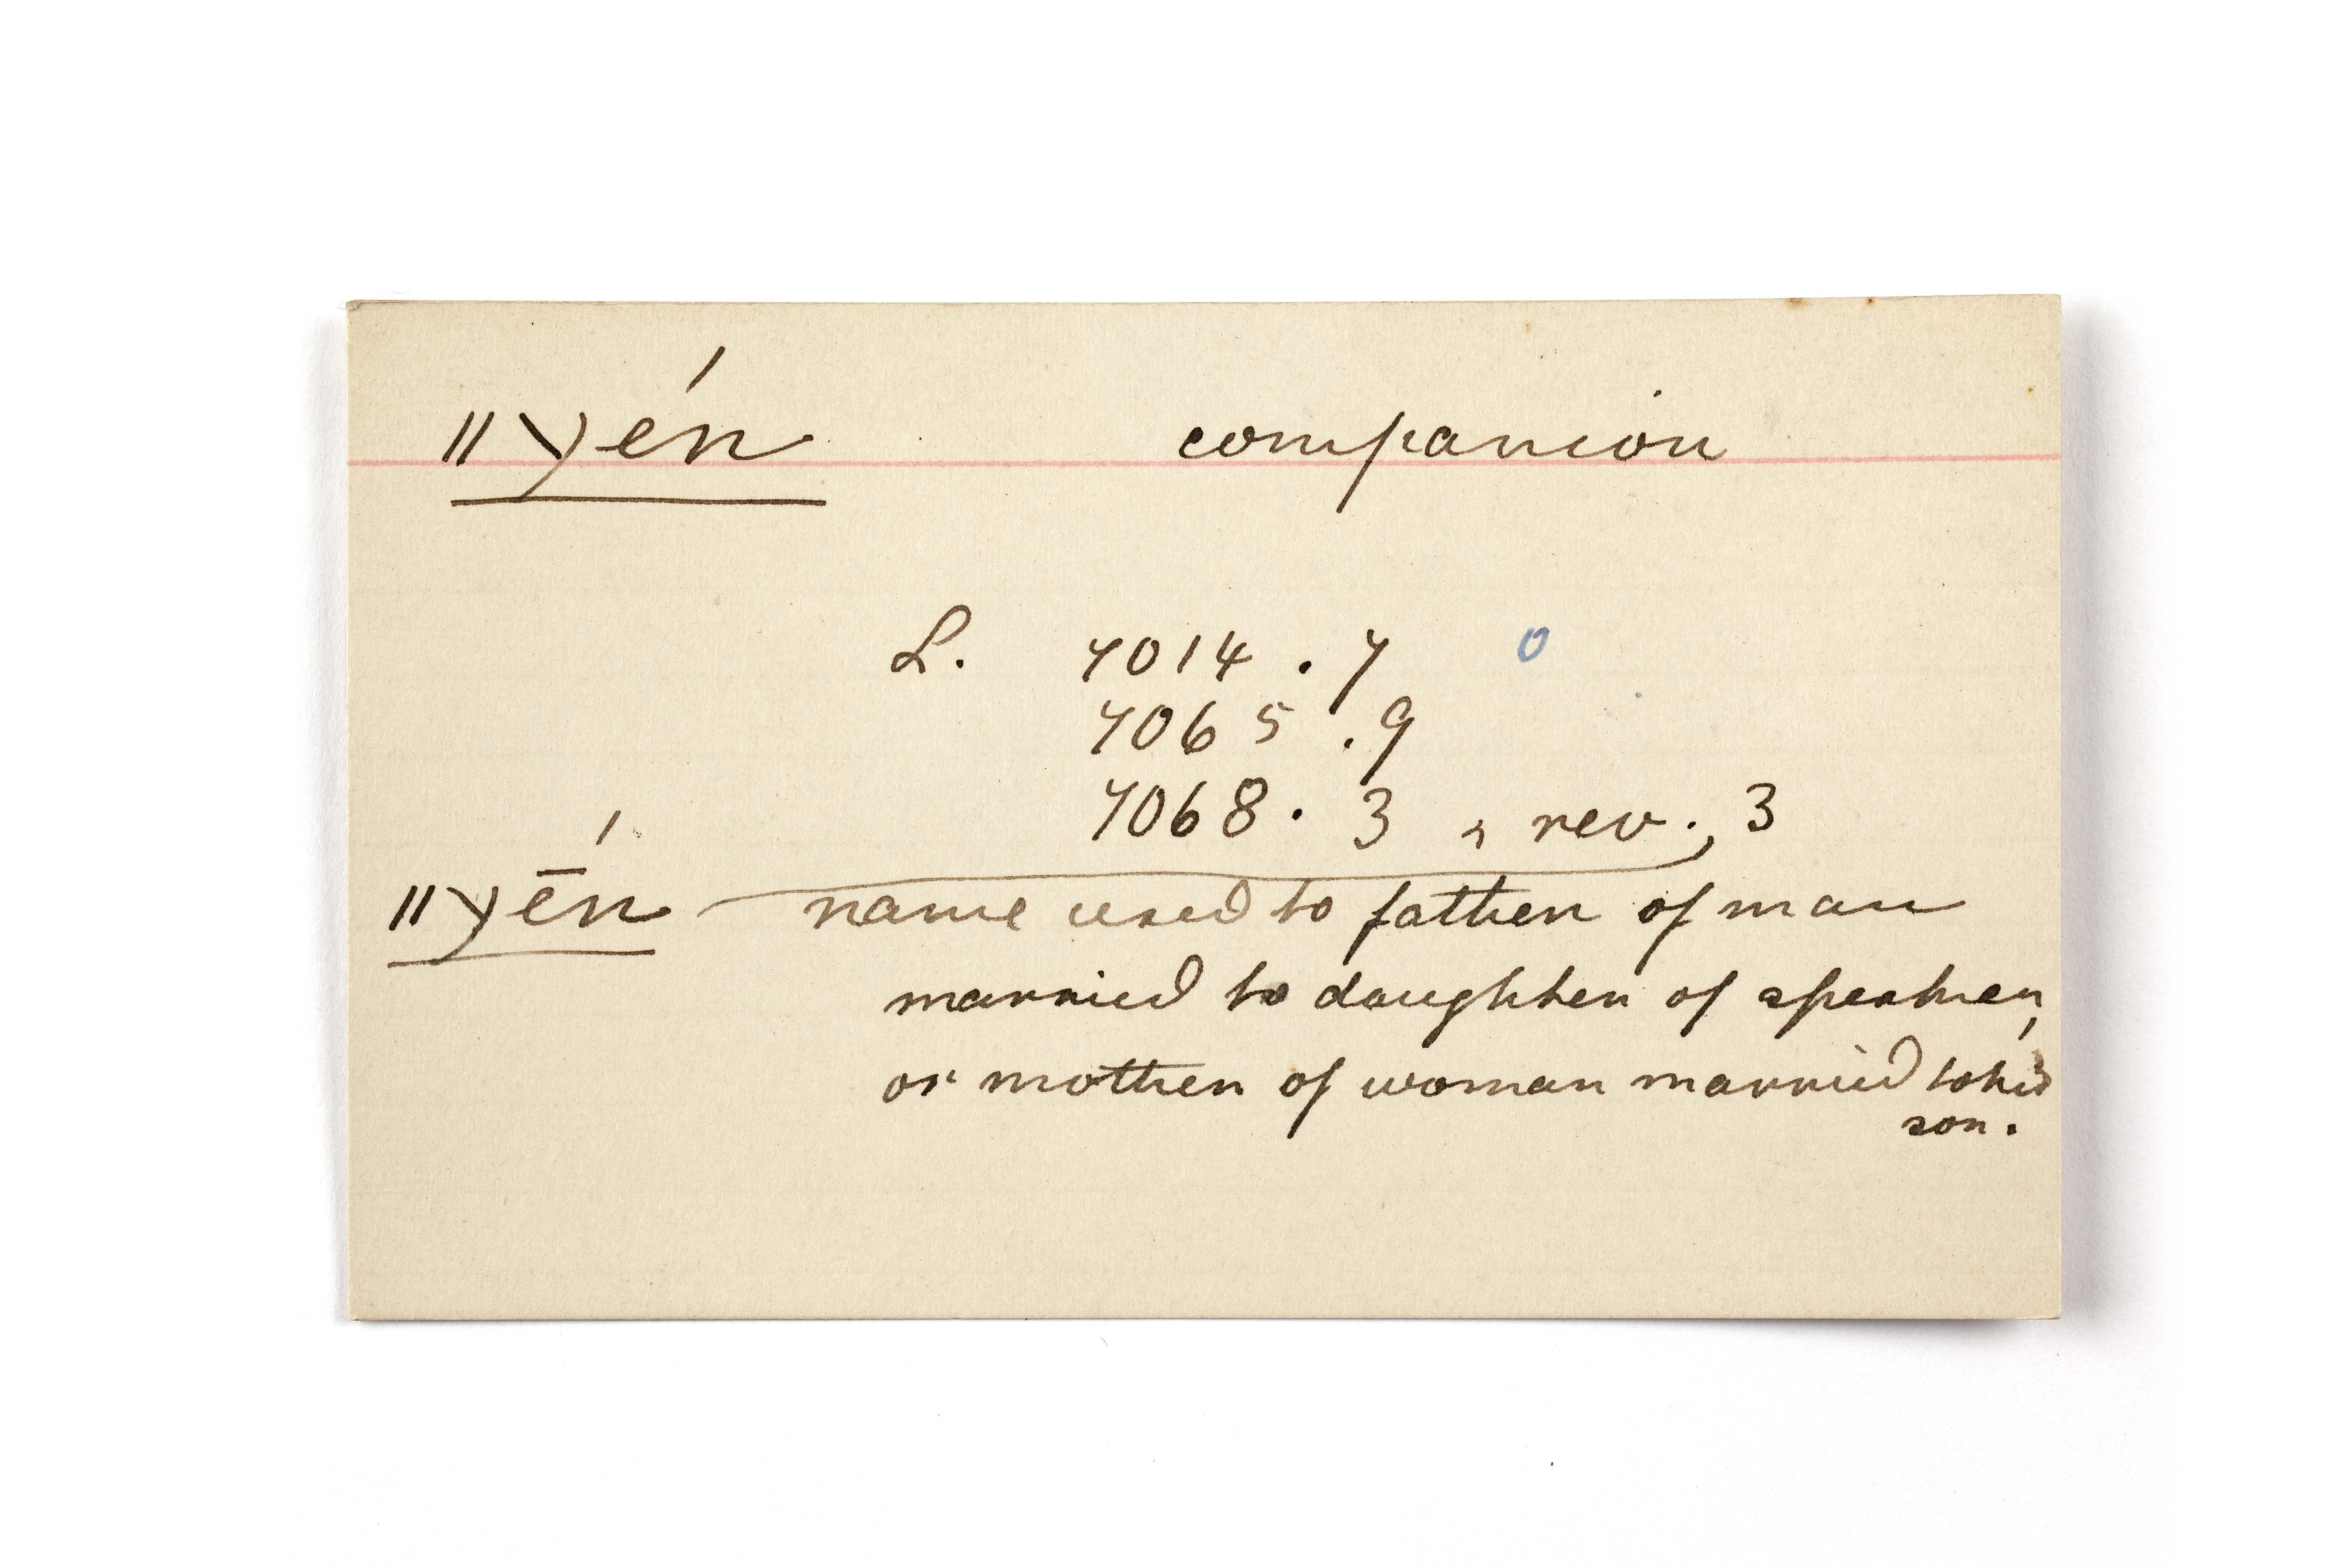 ǁχén companion
L. 7014 . 7 0
7065 . 9
7068 . 3 , rev., 3
ǁχḗn name used to father of man
married to daughter of speaker,
or mother of woman married to his
son.